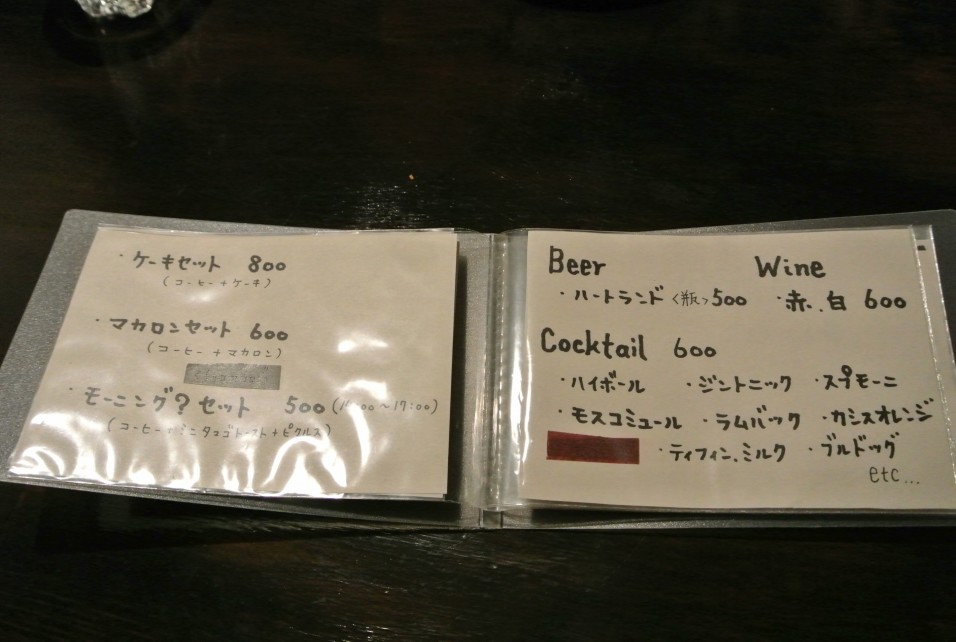 ・ケーキセット 800
(コーヒー+ケーキ)
・マカロンセット 600
(コーヒー+マカロン)
・モーニング?セット 500 (:00~17:00)
(コーヒー+ミニタマゴトースト+ピクルス)
Beer Wine
・ハートランド<瓶>500 ・赤、白 600
Cocktail 600
・ハイボール ・ジントニック ・スプモーニ
・モスコミュール ・ラムバック ・カシスオレンジ
・ティフィン、ミルク ・ブルドッグ
etc...